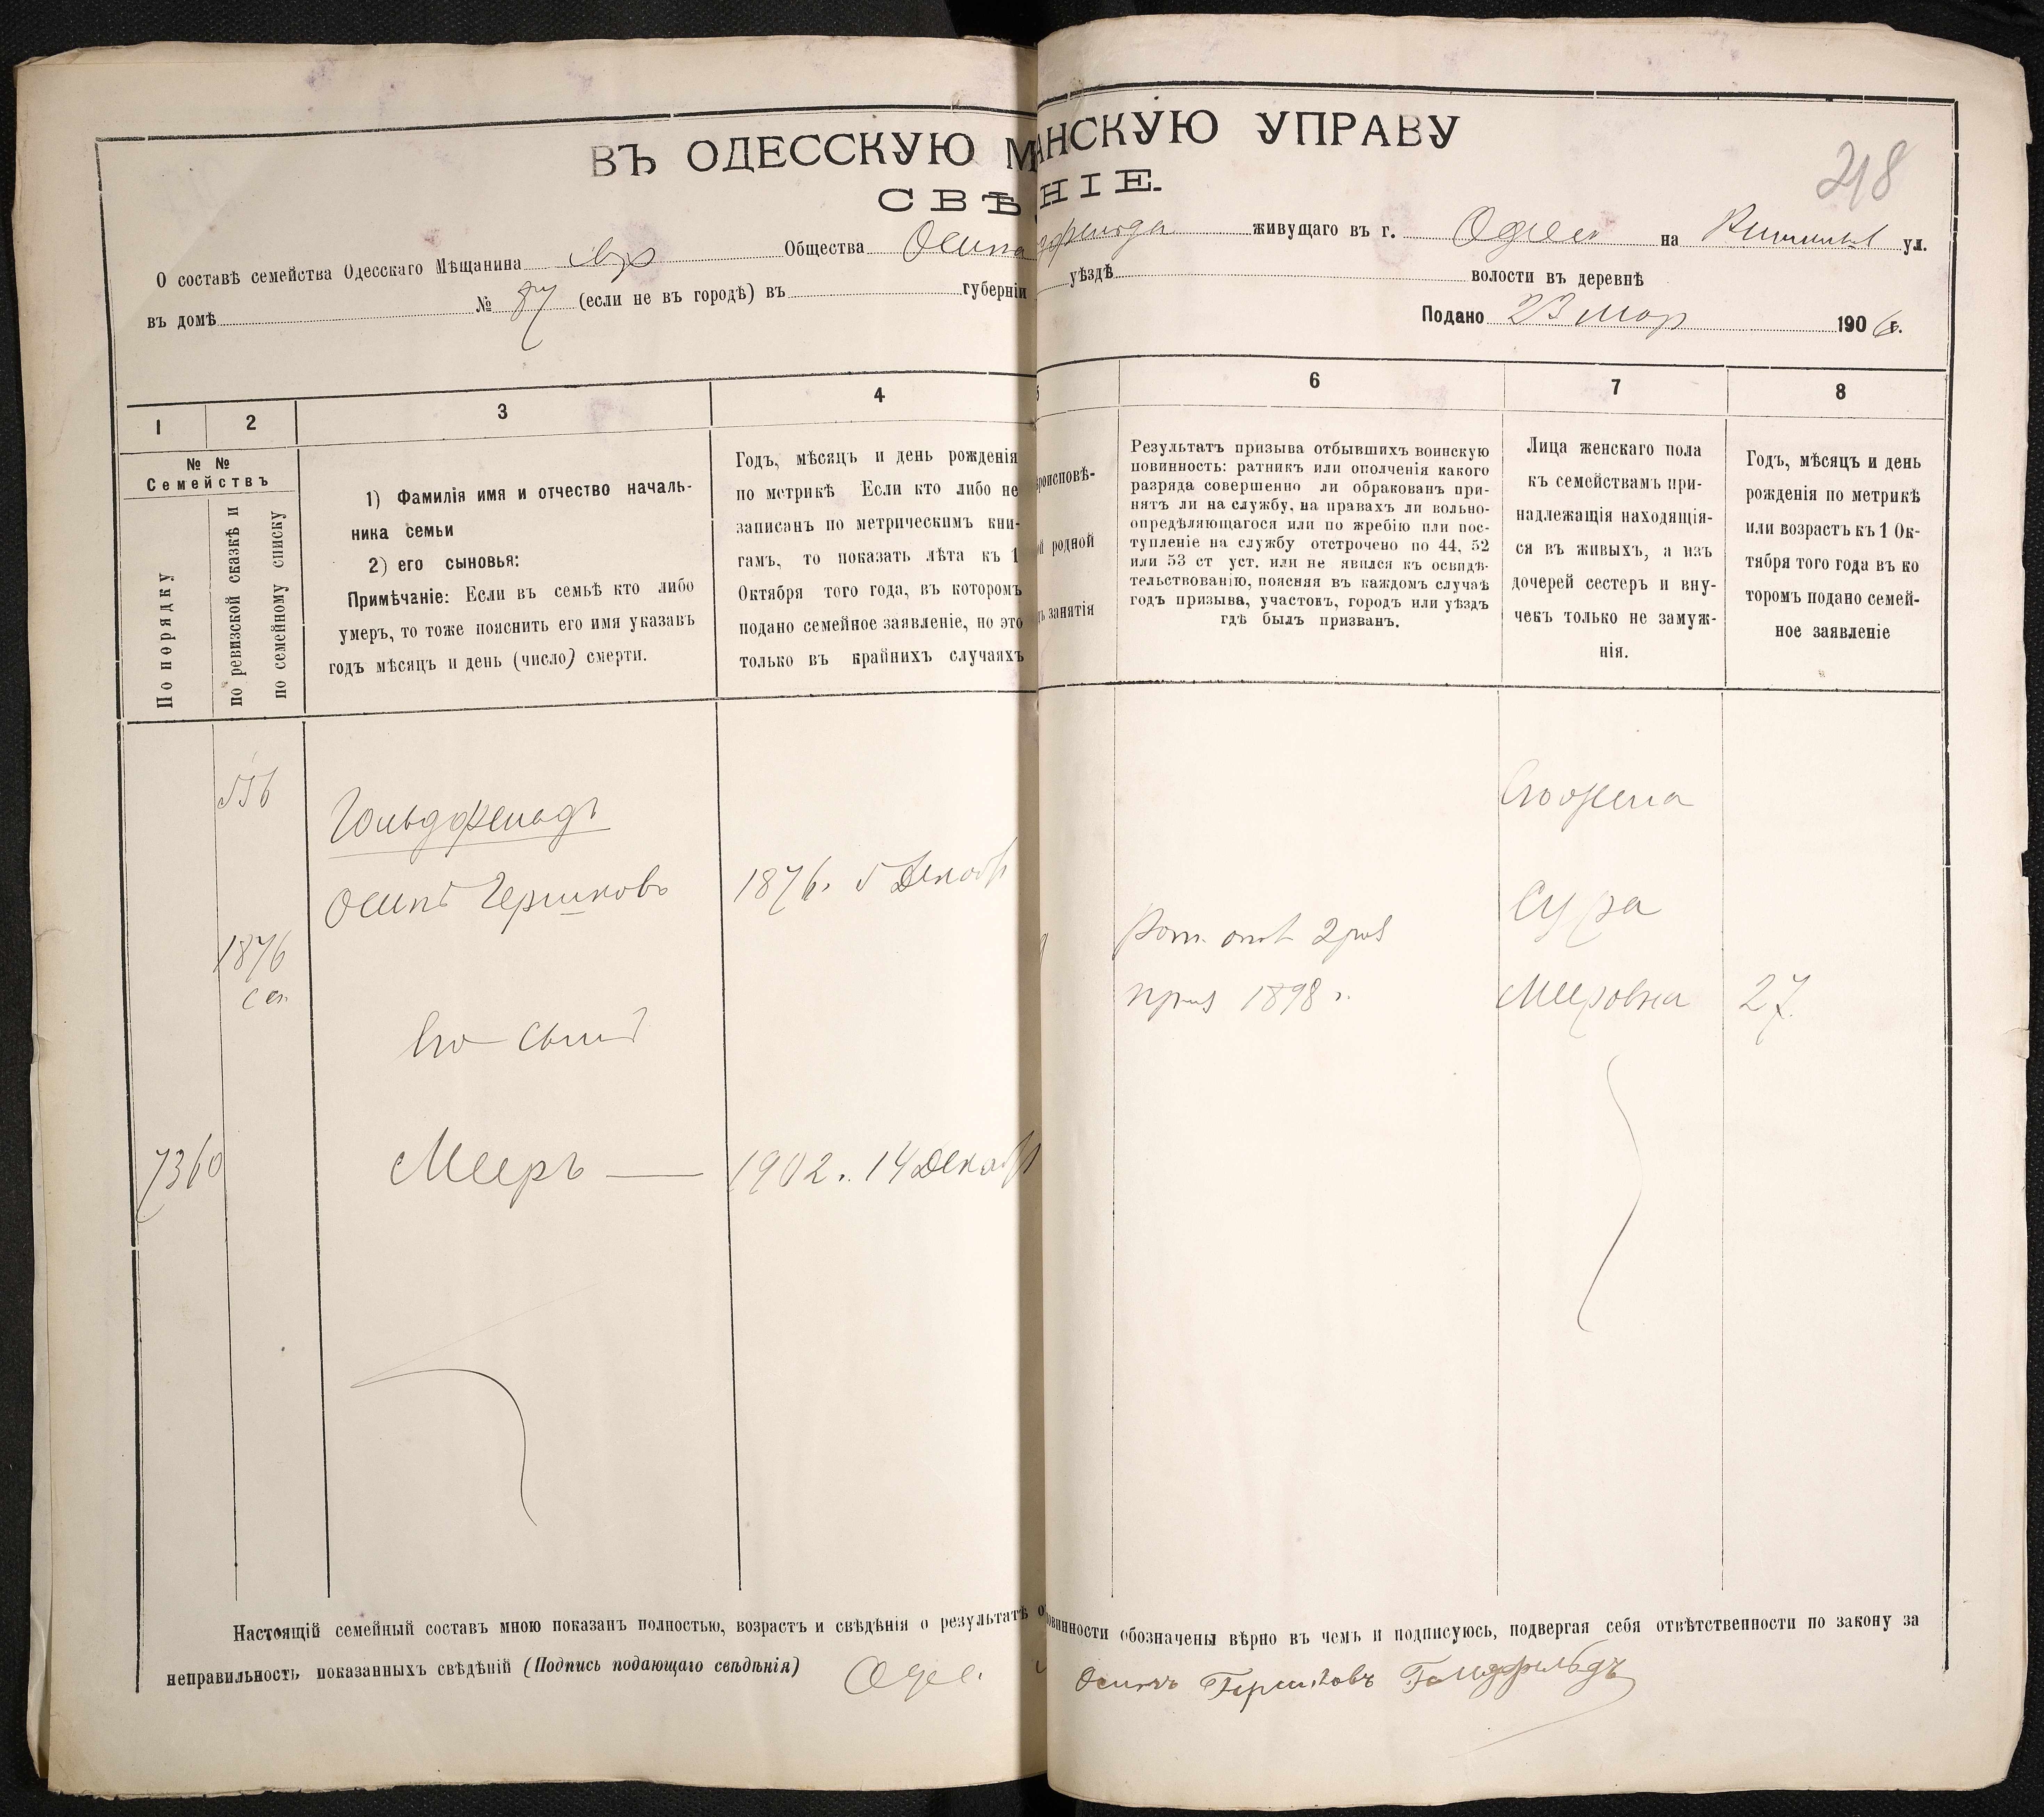 ВЪ ОДЕССКУЮ М АНСКУЮ УПРАВУ
СВѢ НІЕ.
218
О составѣ семейства Одесскаго Мѣщанина Евр Общества Осипа живущаго въ г. Одессѣ на ул.
въ домѣ № 87 (если не въ городѣ) въ губерніи уѣздѣ волости въ деревнѣ
Подано 23 мар 1906 г.
1 2 3 4 5 6 7 8
№ № Семействъ
По порядку
по ревизской сказкѣ и
по семейному списку
1) Фамилія имя и отчество началь-
ника семьи
2) его сыновья:
Примѣчаніе: Если въ семьѣ кто либо
умеръ, то тоже пояснить его имя указавъ
годъ мѣсяцъ и день (число) смерти.
Годъ, мѣсяцъ и день рожденія
по метрикѣ Если кто либо не
записанъ по метрическимъ кни-
гамъ, то показать лѣта къ 1
Октября того года, въ которомъ
подано семейное заявленіе, но это
только въ крайнихъ случаяхъ
роисповѣ-
й родной
ъ занятія
Результатъ призыва отбывшихъ воинскую
повинность: ратникъ или ополченія какого
разряда совершенно ли обракованъ при-
нятъ ли на службу, на правахъ ли вольно-
опредѣляющагося или по жребію или пос-
тупленіе на службу отстрочено по 44, 52
или 53 ст уст. или не явился къ освидѣ-
тельствованію, поясняя въ каждомъ случаѣ
годъ призыва, участокъ, городъ или уѣздъ
гдѣ былъ призванъ.
Лица женскаго пола
къ семействамъ при-
надлежащія находящія-
ся въ живыхъ, а изъ
дочерей сестеръ и вну-
чекъ только не замуж-
нія.
Годъ, мѣсяцъ и день
рожденія по метрикѣ
или возрастъ къ 1 Ок-
тября того года въ ко
торомъ подано семей-
ное заявленіе
556
Гольдфельдъ
Осипъ Гершковъ
1876. 5 Декабр
1876
сп.
Его сынъ
7360
Мееръ
1902. 14 Декабр
Рат. опол 2 раз
приз 1898 г.
Его жена
Сура
Мееровна
27
Настоящій семейный составъ мною показанъ полностью, возрастъ и свѣдѣнія о результатѣ о овинности обозначены вѣрно въ чемъ и подписуюсь, подвергая себя отвѣтственности по закону за
неправильность показанныхъ свѣдѣній (Подпись подающаго свѣдѣнія) Одес. Осипъ Гершковъ Гольдфельдъ